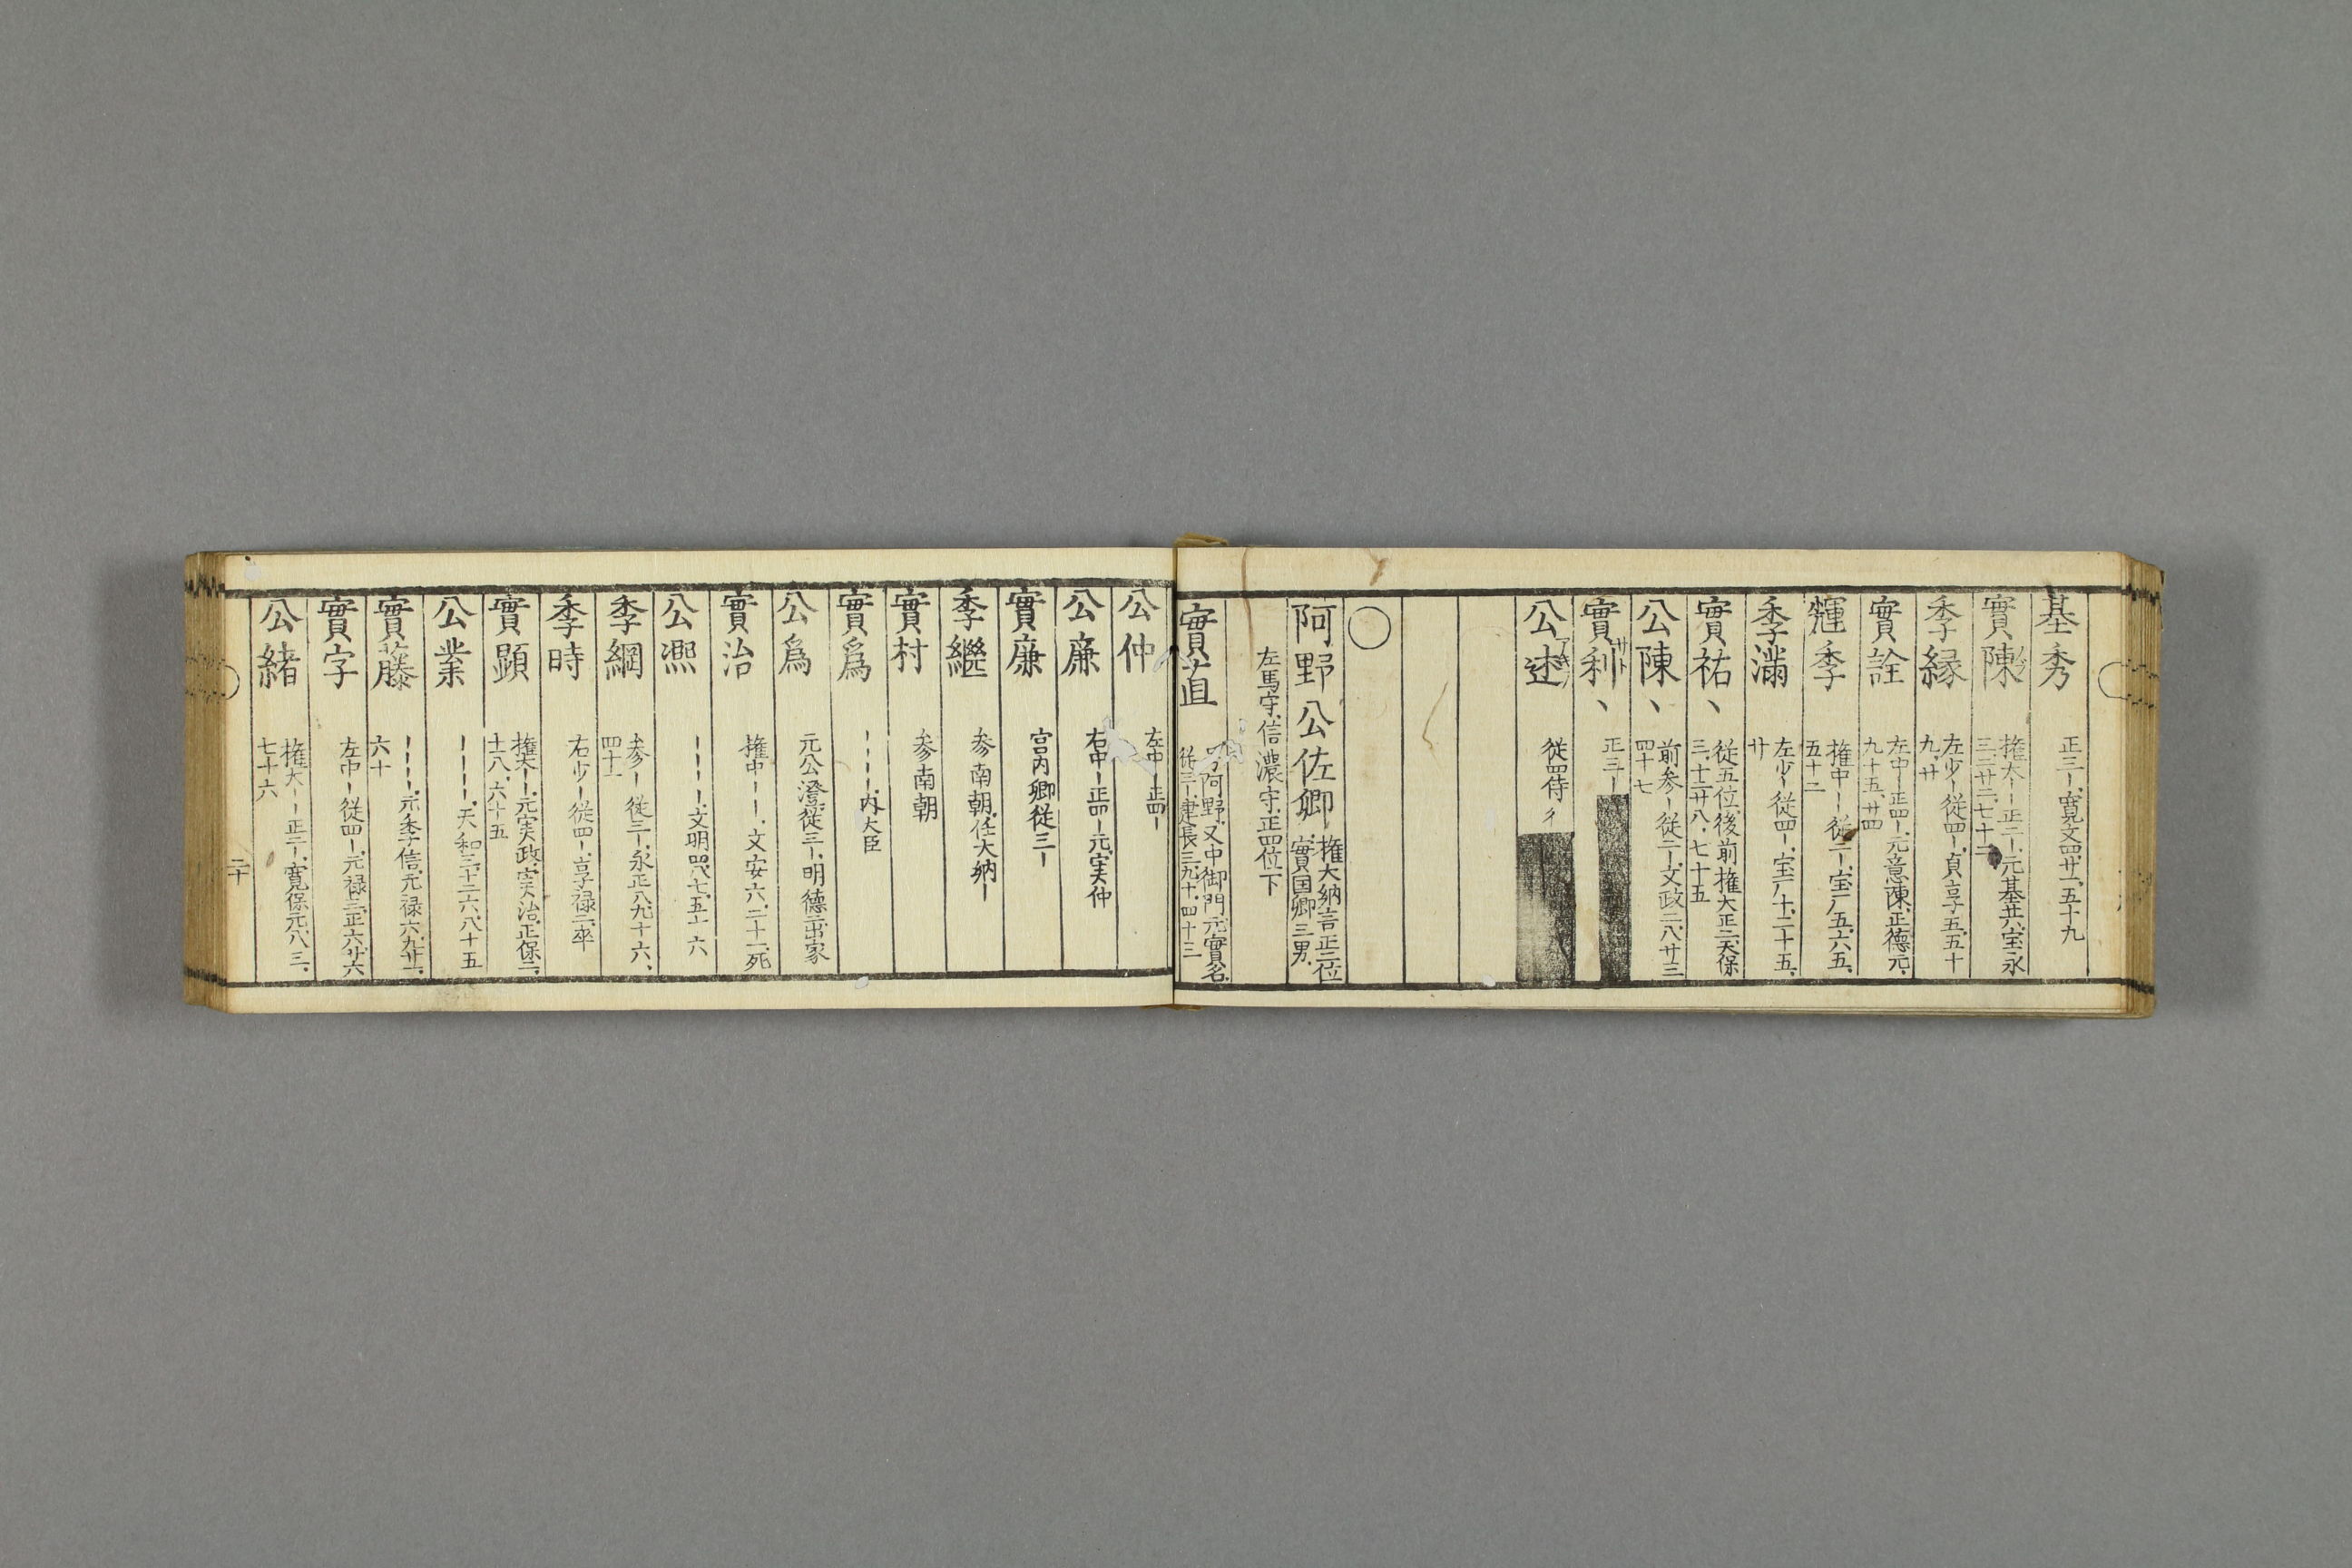 基秀 正三ー、寛文四、廿一、五十九
實陳 権大ー正二ー、元基共、宝永三、二、廿二、七十二
季縁 左少ー従四ー、貞享五、五、十九、廿
實詮 左中ー正四ー、元意陳、正徳元、九、十五、廿四
輝季 権中ー従二ー、宝ノ五、六、五、五十二
季満 左少ー従四ー、宝ノ十、二、十五、廿
實祐、 従五位、後前権大正二、天保三、十二、廿八、七十五
公陳、 前参ー従二ー、文政二、八、廿三、四十七
實利、 サト 正三ー
公述 従四侍
○
阿野公佐卿 権大納言正三位 實国卿三男、
左馬守、信濃守、正四位下
實直 阿野、又中御門、元實名、従三ー、建長三、九、十、四十三
公仲 左中ー正四ー
公廉 右中ー正四ー元、実仲
實廉 宮内卿従三ー
季継 参南朝、任大納ー
實村 参南朝
實為 ーーーー、内大臣
公為 元公澄、従三ー、明徳二、出家
實治 権中ーー、文安六、二、十一、死
公凞 ーーーー文明四、八、七、五十六
季綱 参ー従三ー、永正八、九、十六、四十一
季時 右少ー従四ー、享禄二、卒
實顕 権大ー、元実政、実治、正保二、十一、八、六十五
公業 ーーーー、天和三、十二、六、八十五
實藤 ーーーー、元季信、元禄六、九、廿一、六十
實字 左中ー従四ー、元禄三、正、六、廿六
公緒 権大ー正二ー、寛保元、八、三、七十六
二十